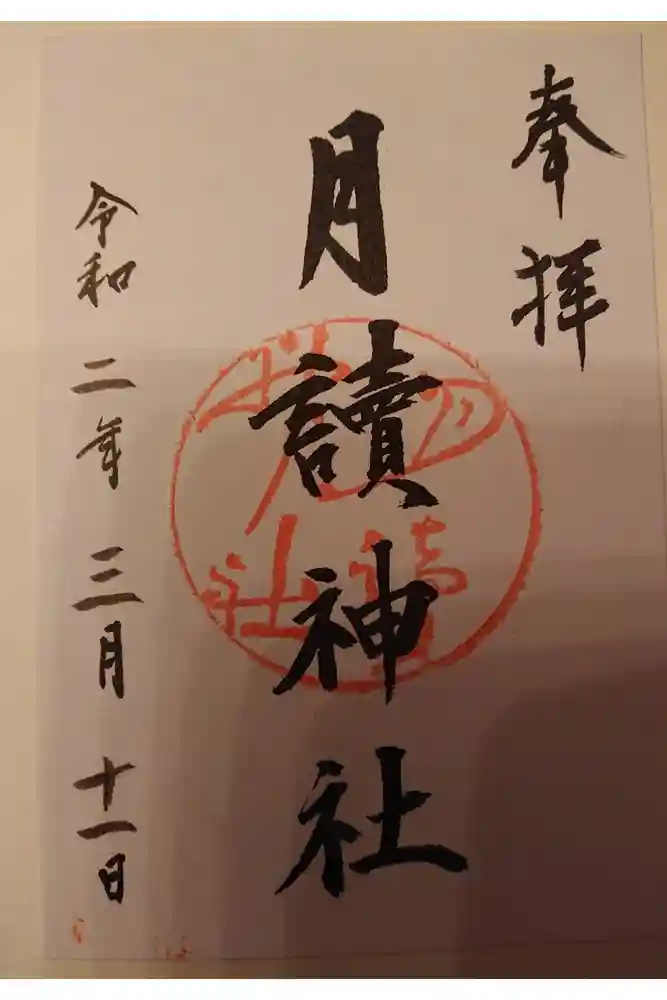 奉拝
月讀神社
令和二年三月十一日